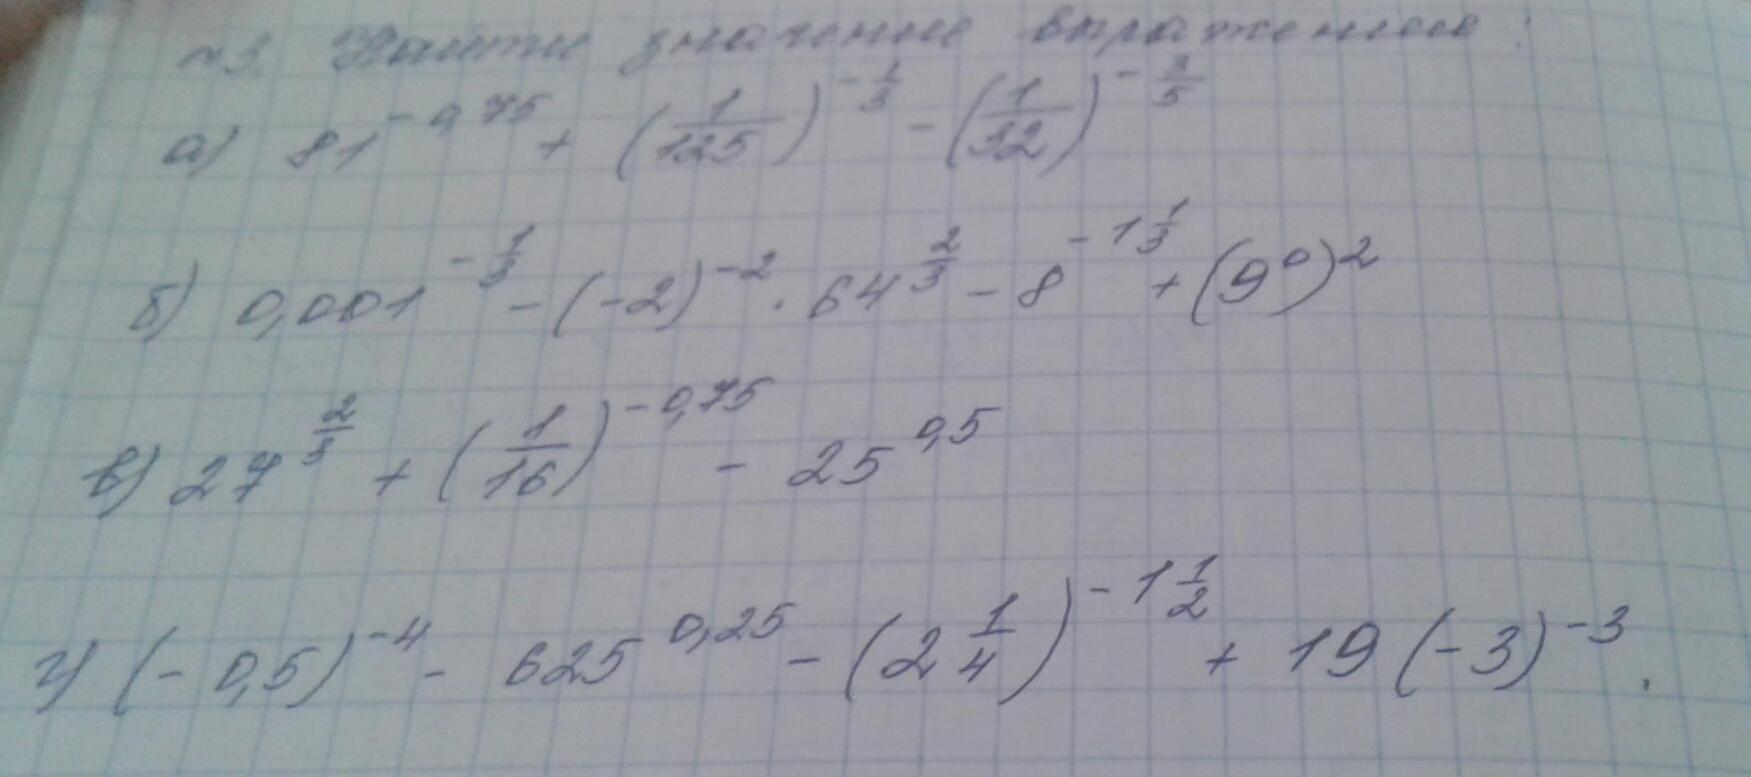 №3. Найти значение выражения:
а) 81^(-0,75) + (1/125)^(-1/3) - (1/32)^(-3/5)
б) 0,001^(-1/3) - (-2)^(-2) · 64^(2/3) - 8^(-1 1/3) + (9^0)^2
в) 27^(2/3) + (1/16)^(-0,75) - 25^(0,5)
г) (-0,5)^(-4) - 625^(0,25) - (2 1/4)^(-1 1/2) + 19(-3)^(-3).